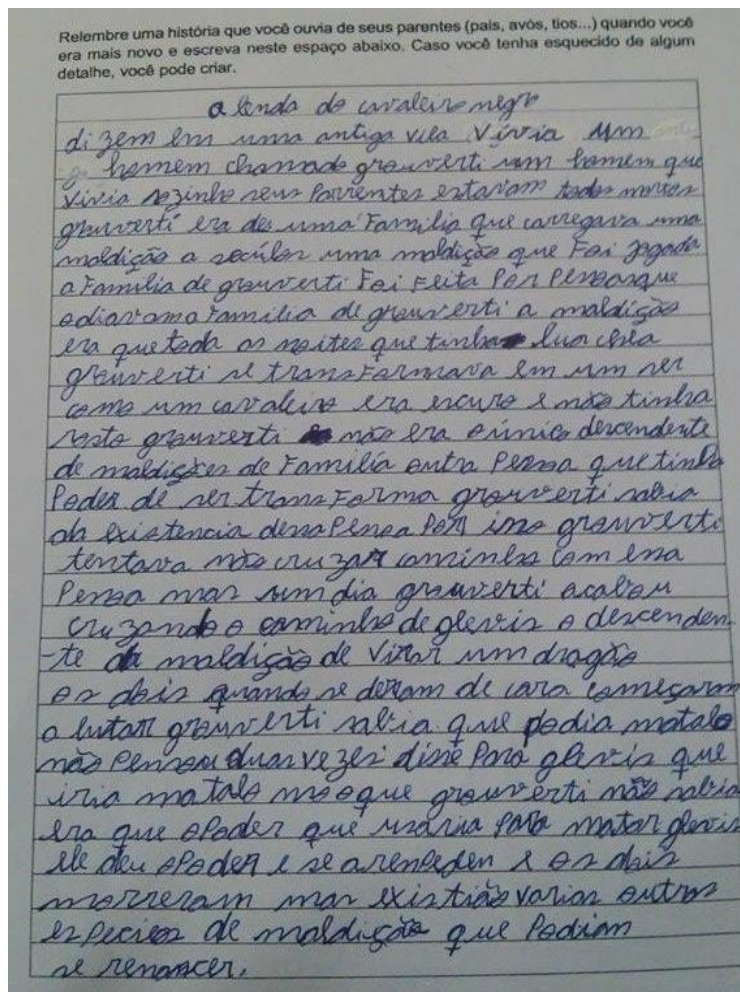 Relembre uma história que você ouvia de seus parentes (pais, avós, tios...) quando você
era mais novo e escreva neste espaço abaixo. Caso você tenha esquecido de algum
detalhe, você pode criar.
a lenda do cavaleiro negro
dizem em uma antiga vila vivia um
homem chamado grauverti um homem que
vivia sozinho seus parrentes estavam todos mortos
grauverti era de uma Familia que carregava uma
maldição a seculos uma maldição que Foi jogada
a Familia de grauverti Foi Feita Por Pessoas que
odiavam a Familia de grauverti a maldição
era que toda as noites que tinha lua cheia
grauverti se transFormava em um ser
como um cavaleiro era escuro e não tinha
rosto grauverti não era o único descendente
de maldições de Familia outra Pessoa que tinha
Poder de ser transForma grauverti sabia
da existencia dessa Pessoa Por isso grauverti
tentava não cruzar caminhos com essa
Pessoa mas um dia grauverti acabou
cruzando o caminho de glevis o descenden
-te da maldição de virar um dragão
os dois quando se deram de cara começaram
a lutar grauverti sabia que podia matalo
não Pensou duas vezes disse Para glevis que
iria matalo mas o que grauverti não sabia
era que o Poder que usaria para matar glevis
ele deu o Poder e se arrenpeden e os dois
morreram mas existião varias outras
especies de maldição que Podiam
se renascer.